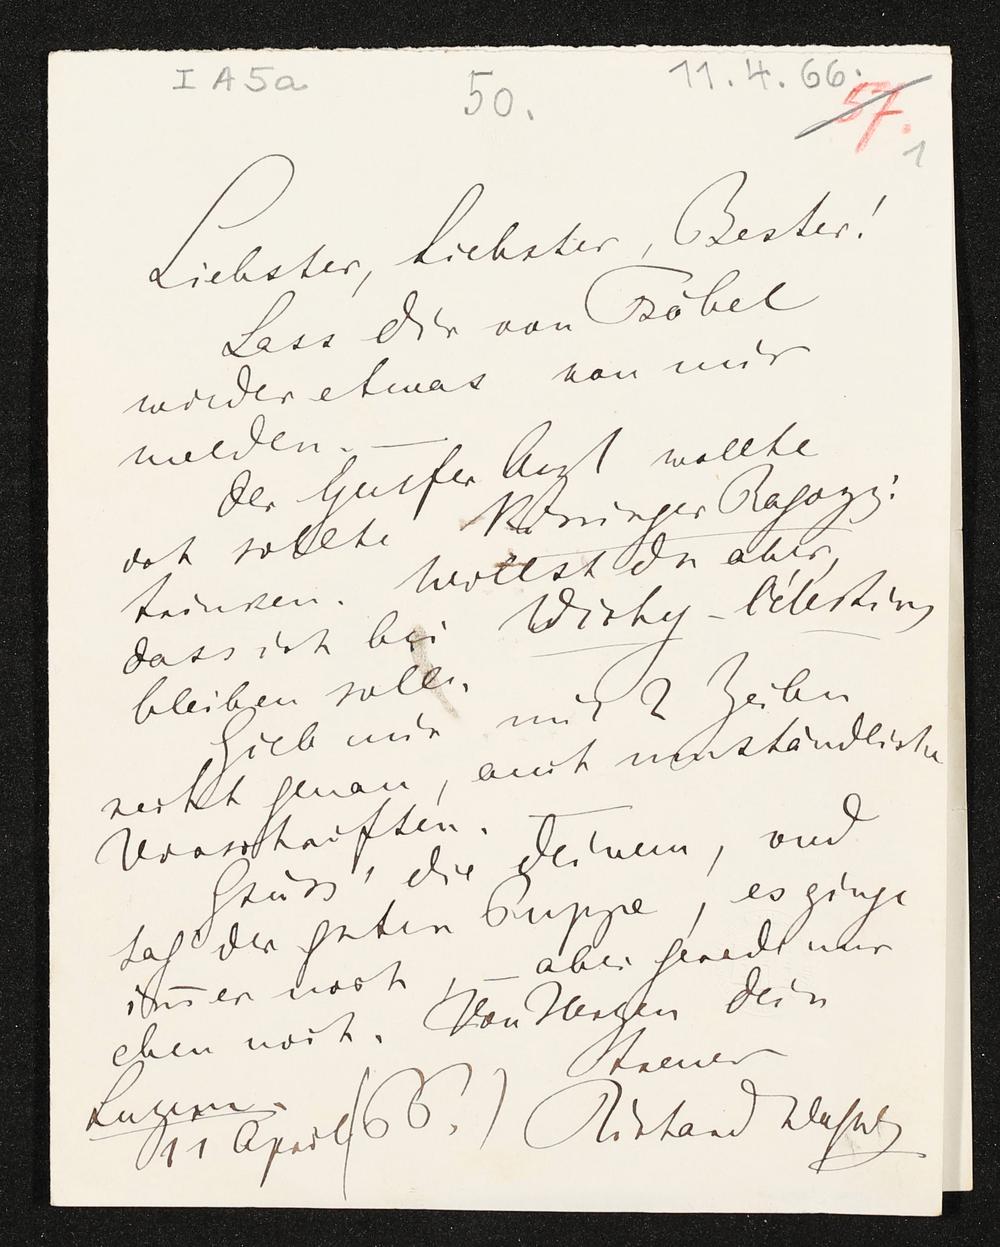 I A 5a
50.
11.4.66.
57.
1
Liebster, Liebster, Bester!
Lass dir von Röckel
wieder etwas von mir
melden. —
Der Genfer Arzt wollte
ich sollte Ragozzi:
trinken. Wolltest du aber,
dass ich bei Vichy-Célestins
bleiben solle.
Gieb mir mit 2 Zeilen
recht genau, auch umständliche
Vorschriften. —
Grüss' die deinem, und
sag' der guten Puppe, es ginge
im̅er noch, — aber gerade nur
eben noch. Von Herzen dein
treuer
Richard Wagner
Luzern.
11 April (66.)